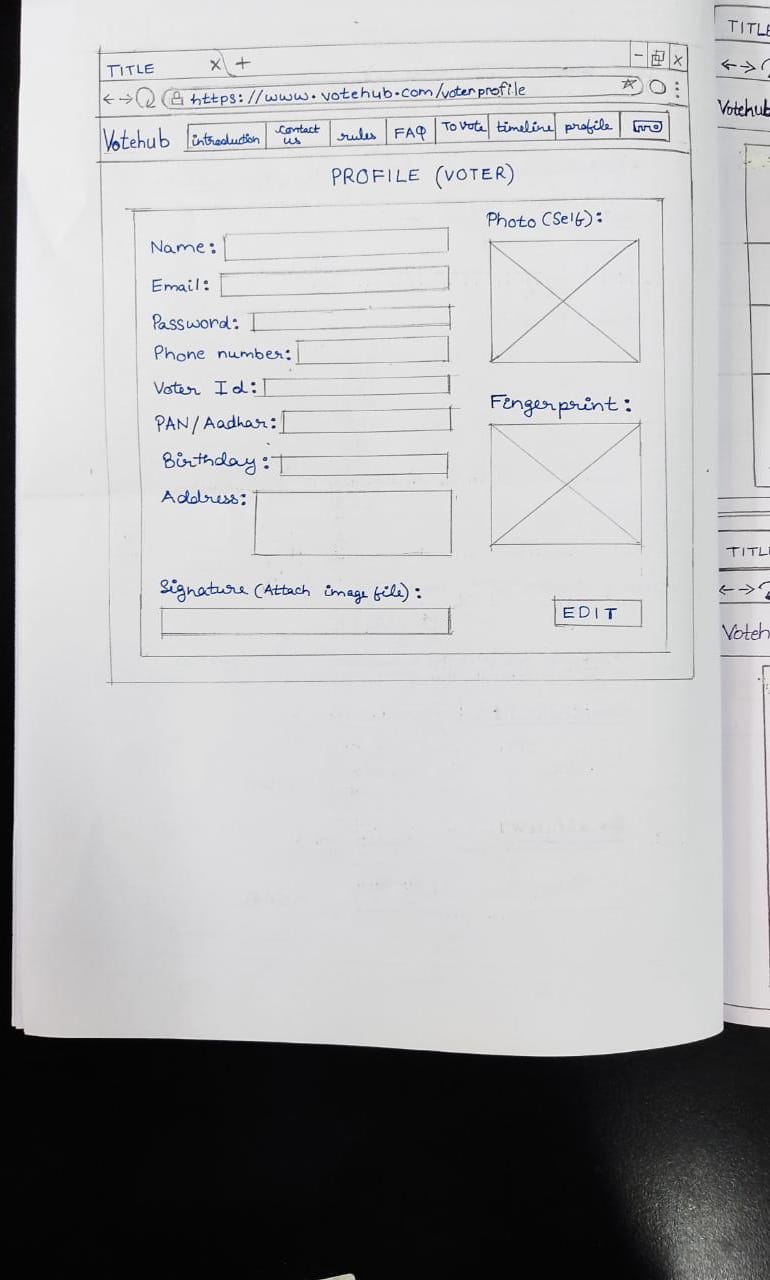 TITLE x +
- x
https://www.votehub.com/voterprofile
Votehub introduction contact us rules FAQ To Vote timeline profile
PROFILE (VOTER)
Photo (Self):
Name:
Email:
Password:
Phone number:
Voter Id:
Fingerprint:
PAN/Aadhar:
Birthday:
Address:
Signature (Attach image file):
EDIT
TITLE
Votehub
TITL
Voteh